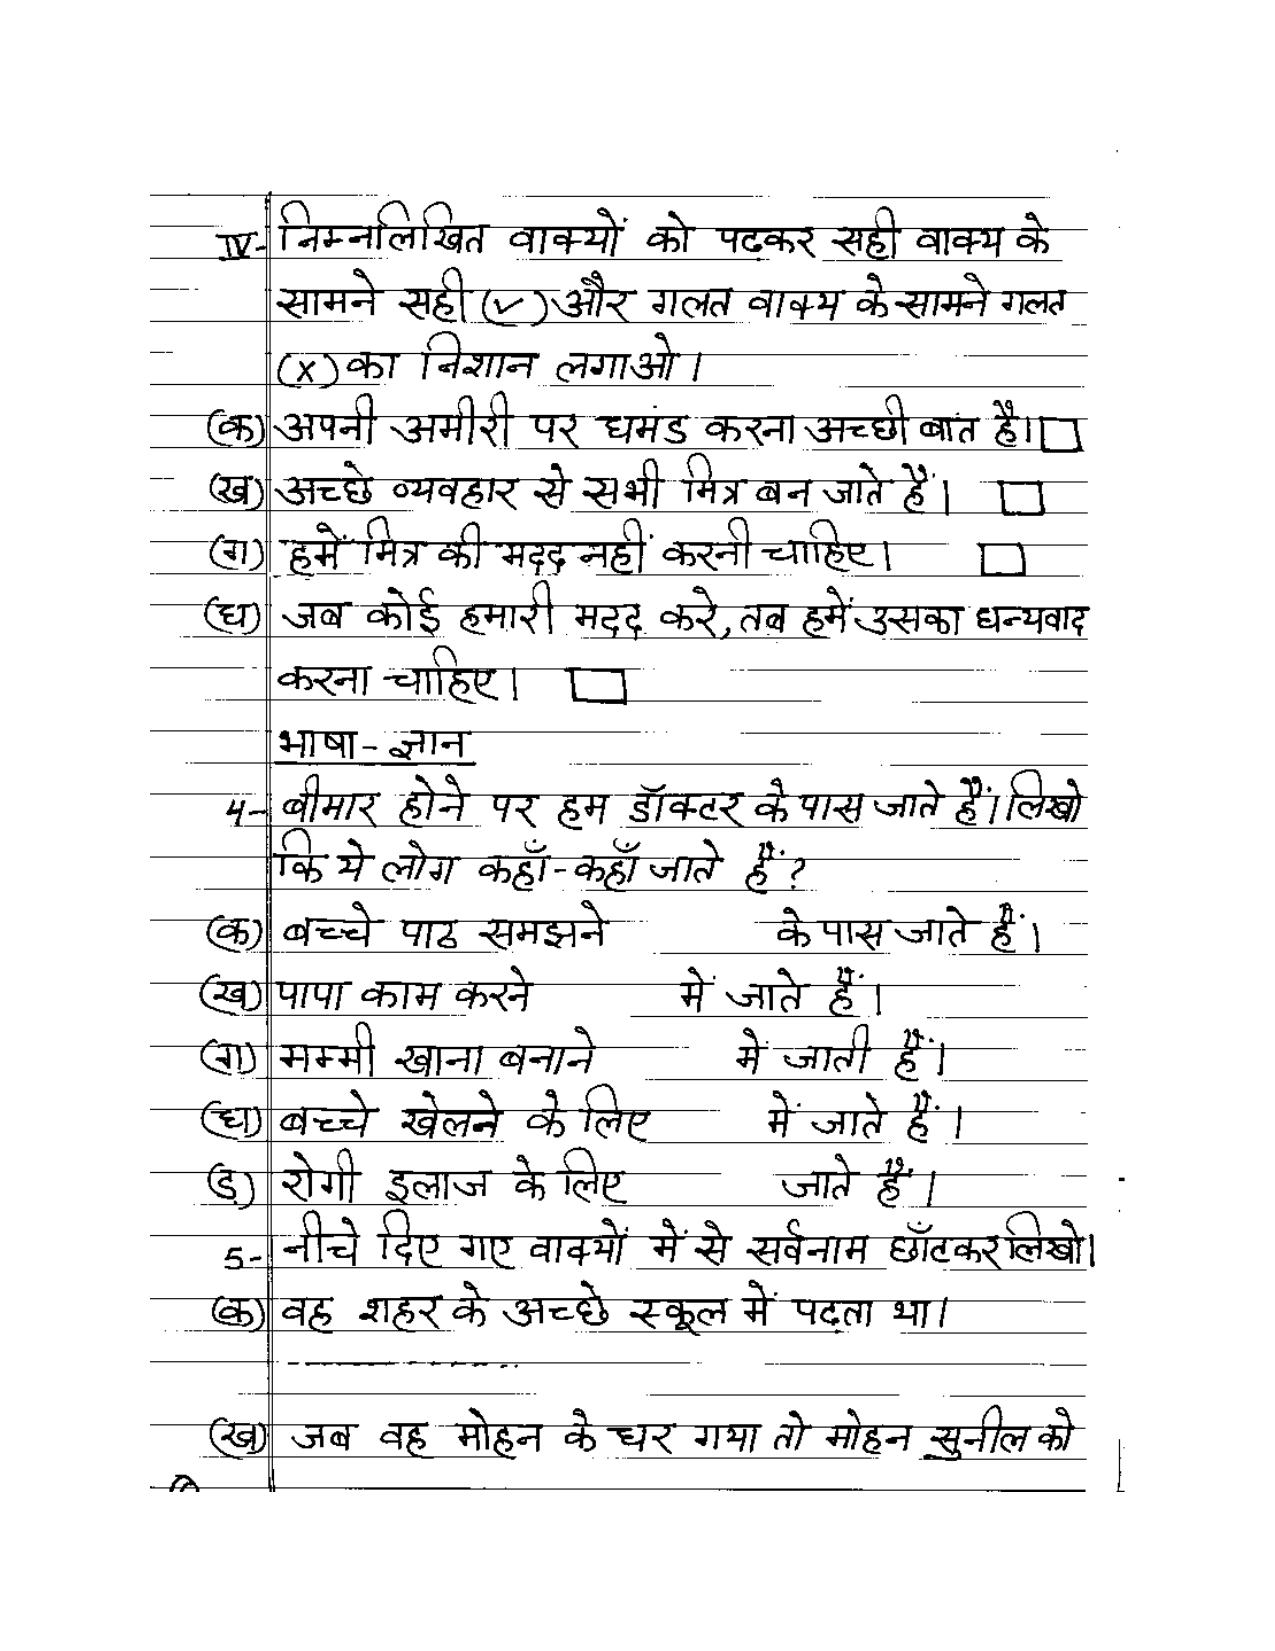 IV- निम्नलिखित वाक्यों को पढकर सही वाक्य के
सामने सही (✓) और गलत वाक्य के सामने गलत
(x) का निशान लगाओ।
(क) अपनी अमीरी पर घमंड करना अच्छी बात है। □
(ख) अच्छे व्यवहार से सभी मित्र बन जाते हैं। □
(ग) हमें मित्र की मदद नहीं करनी चाहिए। □
(घ) जब कोई हमारी मदद करे, तब हमें उसका धन्यवाद
करना चाहिए। □
भाषा - ज्ञान
4- बीमार होने पर हम डॉक्टर के पास जाते हैं। लिखो
कि ये लोग कहाँ-कहाँ जाते हैं?
(क) बच्चे पाठ समझने के पास जाते हैं।
(ख) पापा काम करने में जाते हैं।
(ग) मम्मी खाना बनाने में जाती हैं।
(घ) बच्चे खेलने के लिए में जाते हैं।
(ड़) रोगी इलाज के लिए जाते हैं।
5- नीचे दिए गए वाक्यों में से सर्वनाम छाँटकर लिखो।
(क) वह शहर के अच्छे स्कूल में पढ़ता था।
(ख) जब वह मोहन के घर गया तो मोहन सुनील को